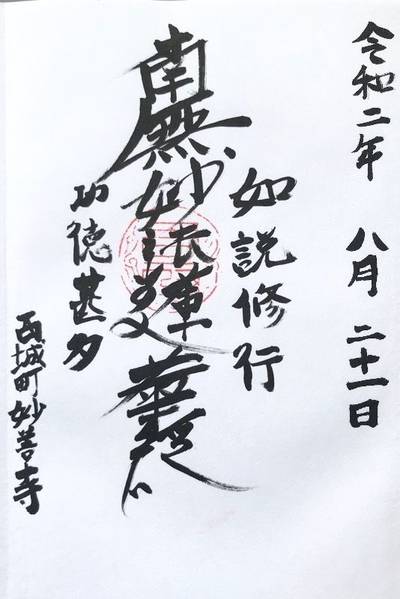 令和二年 八月 二十一日
如説修行
南無妙法蓮華経
功徳甚多
西城町妙善寺